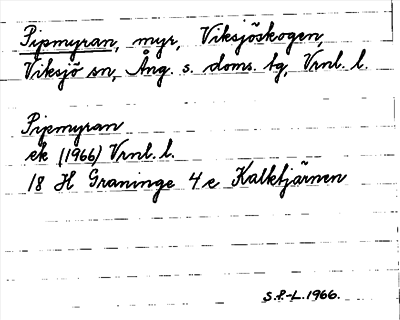 Pipmyran, myr, Viksjöskogen,
Viksjö sn, Ång. s. doms. tg, Vrnl. l.
Pipmyran
ek (1966) Vrnl. l.
18 H Graninge 4 e Kalktjärnen
S.P-L. 1966.